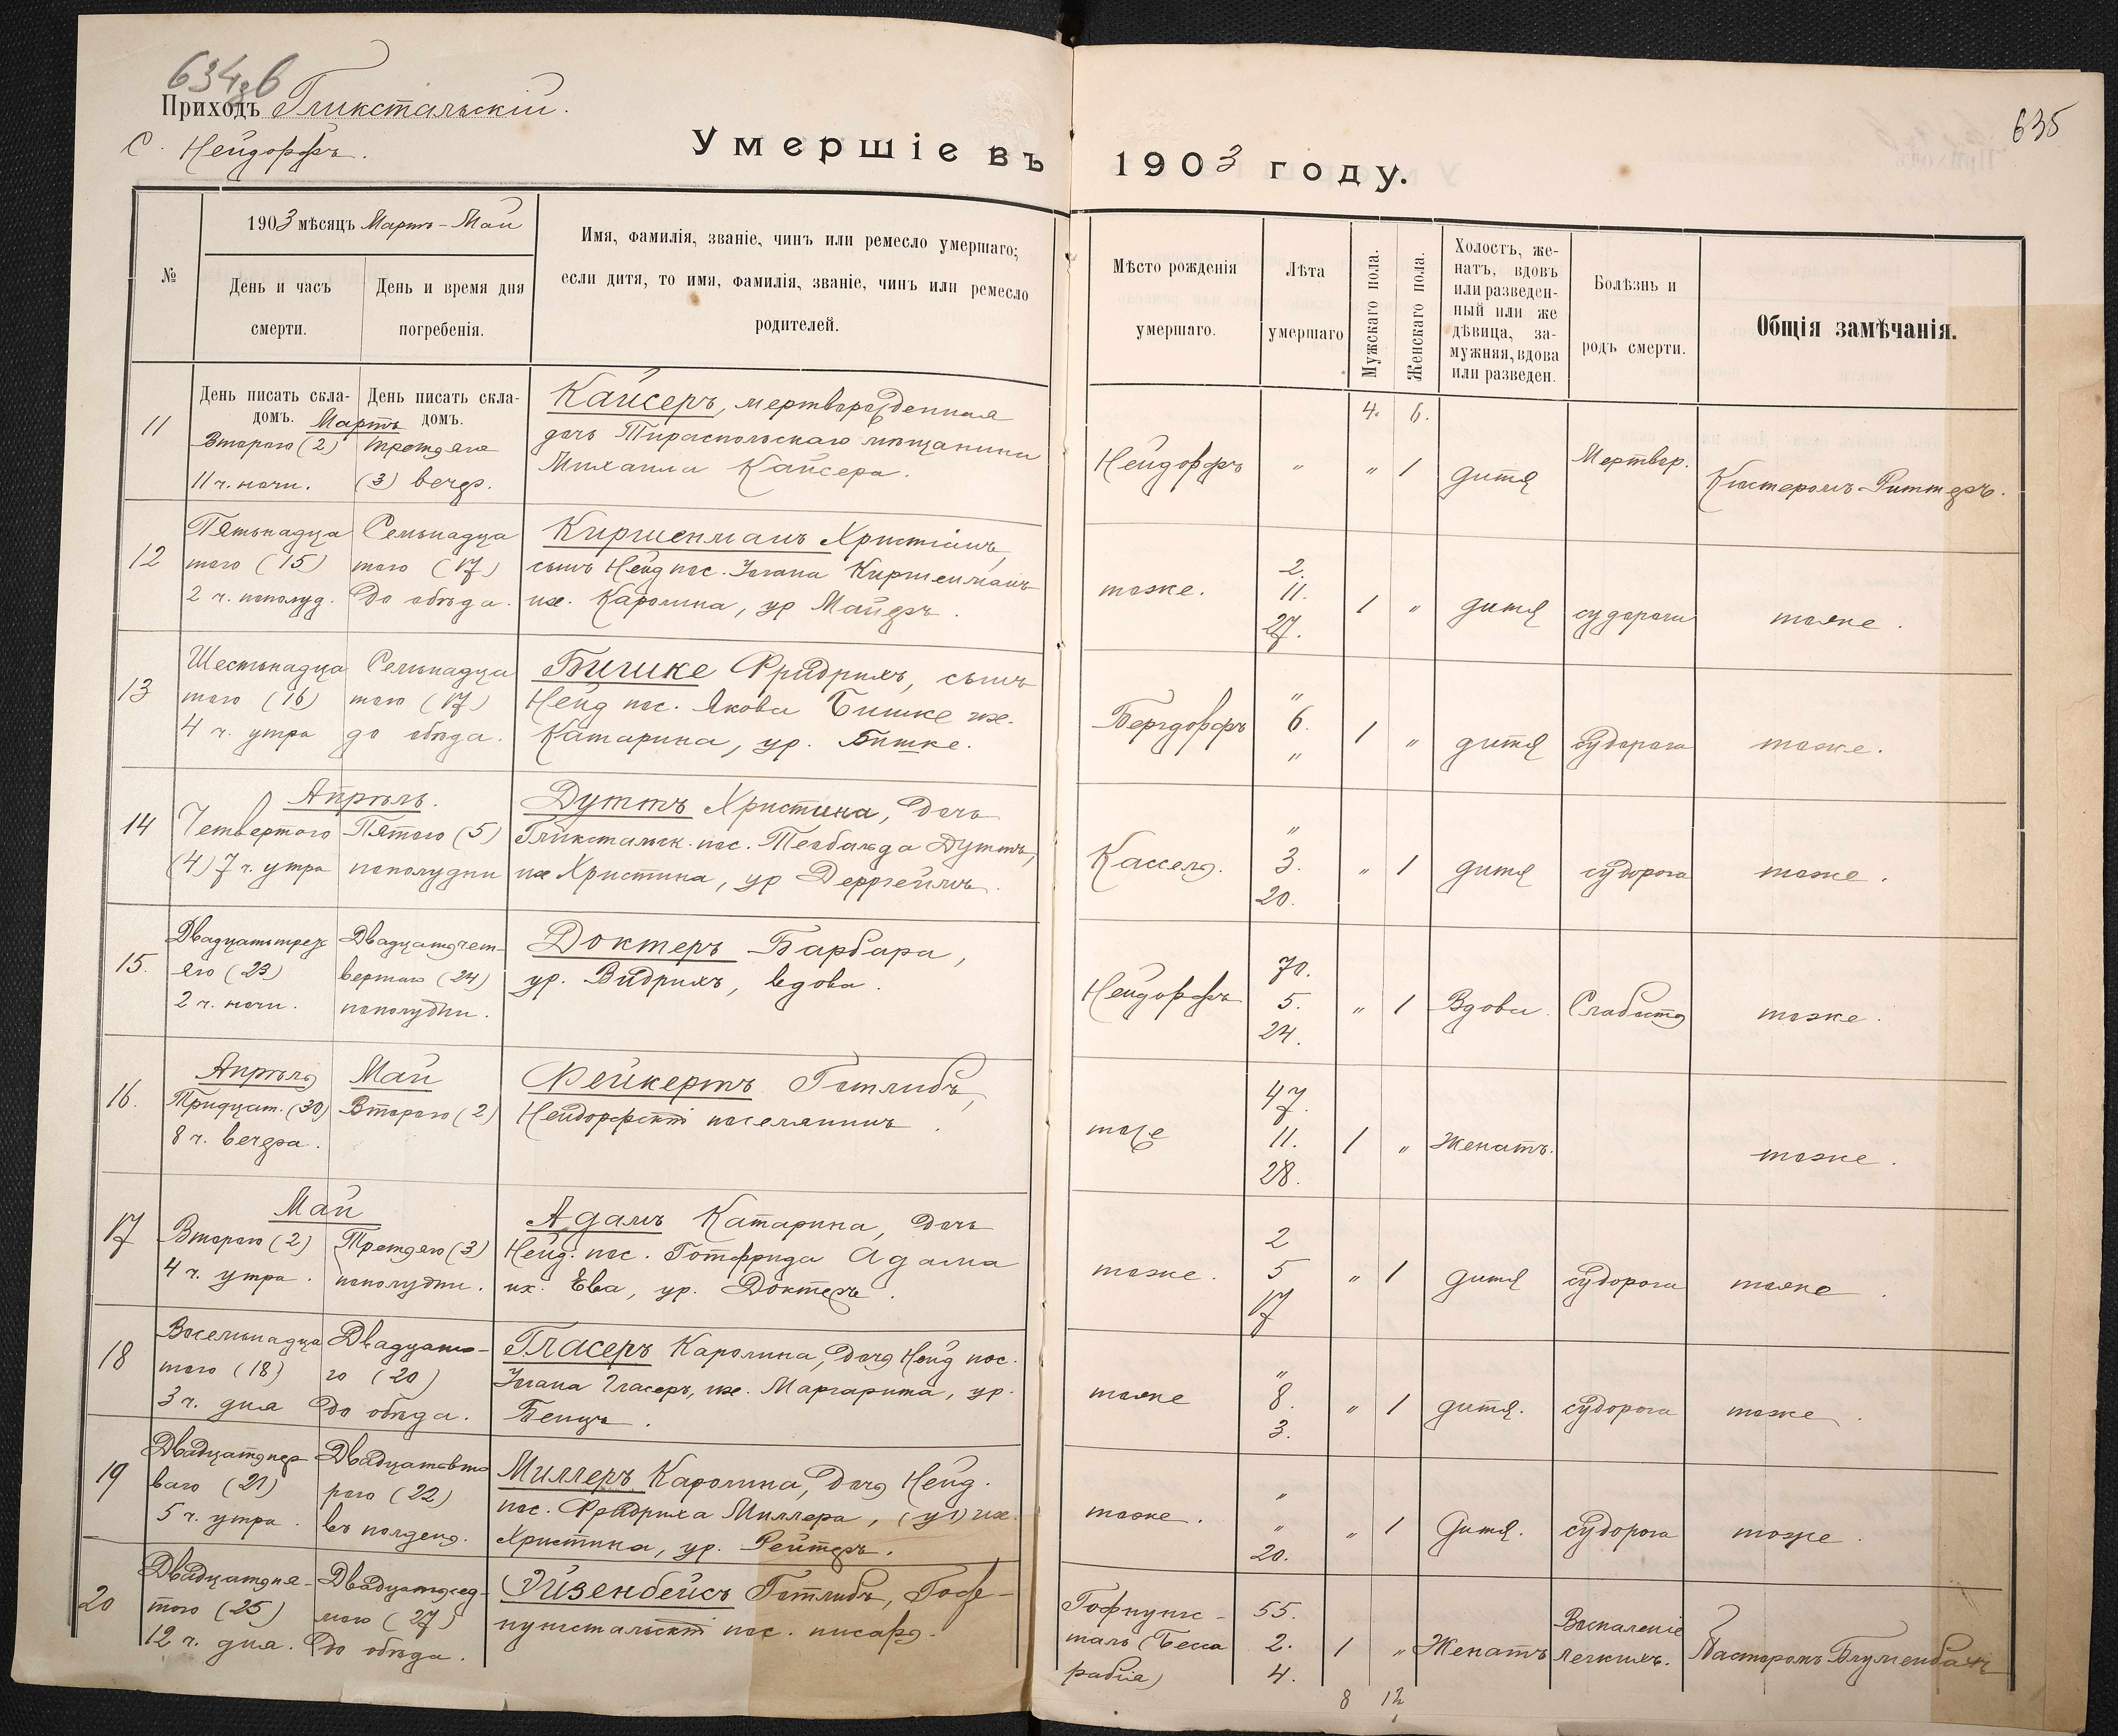 634 в
Приходъ Гликстальскій.
С. Нейдорфъ.
Умершіе въ
№
1903 мѣсяцъ Мартъ - Май
День и часъ
смерти.
День и время дня
погребенія.
Имя, фамилія, званіе, чинъ или ремесло умершаго;
если дитя, то имя, фамилія, званіе, чинъ или ремесло
родителей.
День писать скла-
домъ.
День писать скла-
домъ.
Мартъ
11
Второго (2)
11 ч. ночи.
Третьяго
(3) вечер.
Кайсеръ, мертворожденная
дочь Тираспольскаго мѣщанина
Михаила Кайсера.
12
Пятьнадца
таго (15)
2 ч. пополуд.
Семьнадца
таго (17)
до обѣда.
Киршенманъ Христіанъ,
сынъ Нейд пос. Іогана Киршенманъ
иж. Каролина, ур Майеръ.
13
Шестьнадца
таго (16)
4 ч. утра
Семьнадца
таго (17)
до обѣда.
Бишке Фридрихъ, сынъ
Нейд пос. Якова Бишке иж.
Катарина, ур. Бишке.
Апрѣль.
14
Четвертаго
(4) 7 ч. утра
Пятаго (5)
пополудни
Дуттъ Христина, дочь
Гликстальск. пос. Теобальда Дуттъ,
иж Христина, ур
15.
Двадцатьтреть
яго (23)
2 ч. ночи.
Двадцатьчет-
вертаго (24)
пополудни.
Доктеръ Барбара,
ур. Видрихъ, вдова.
16.
Апрѣль
Тридцат. (30)
8 ч. вечера.
Май
Второго (2)
Фейкертъ Готлибъ,
Нейдорфскій поселянинъ.
Май
17
Второго (2)
4 ч. утра.
Третьяго (3)
пополудни.
Адамъ Катарина, дочь
Нейд. пос. Готфрида Адама
иж. Ева, ур. Доктеръ.
18
Восемьнадца
таго (18)
3 ч. дня
Двадцата-
го (20)
до обѣда.
Гласеръ Каролина, дочь Нейд пос.
Іогана Гласеръ, иж. Маргарита, ур.
Бенцъ.
19
Двадцатьпер
ваго (21)
5 ч. утра.
Двадцатьвто
раго (22)
въ полдень.
Миллеръ Каролина, дочь Нейд.
пос. Фридриха Миллера, (ум) иж.
Христина, ур. Рейтеръ.
20
Двадцатьпя-
таго (25)
12 ч. дня.
Двадцатьсед-
маго (27)
до обѣда.
Эйзенбейсъ Готлибъ, Гоф-
нунгстальскій пос. писарь.
635
1903 году.
Мѣсто рожденія
умершаго.
Лѣта
умершаго
Мужскаго пола.
Женскаго пола.
Холостъ, же-
натъ, вдовъ
или разведен-
ный или же
дѣвица, за-
мужняя, вдова
или разведен.
Болѣзнь и
родъ смерти.
Общія замѣчанія.
4. 6.
Нейдорфъ " " 1 дитя Мертвор. Кистеромъ Риттеръ.
тоже. 2. 11. 27. 1 " дитя судорога тоже.
Бергдорфъ " 6. " 1 " дитя судорога тоже.
Кассель. " 3. 20. " 1 дитя судорога тоже.
Нейдорфъ 70. 5. 24. " 1 Вдова. Слабость тоже.
тоже 47. 11. 28. 1 " Женатъ. тоже.
тоже. 2 5 17 " 1 дитя судорога тоже.
тоже " 8. 3. " 1 дитя. судорога тоже.
тоже. " " 20. " 1 дитя. судорога тоже.
Гофнунгс-
таль (Бесса
рабія)
55. 2. 4. 1 " Женатъ
Воспаленіе
легкихъ.
Пасторомъ Блуменбахъ
8 12